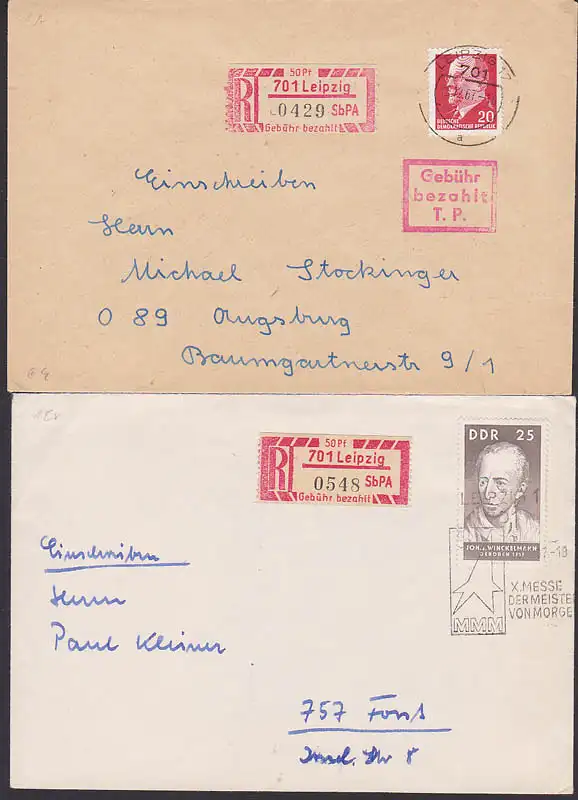 50 Pf
701 Leipzig
R 0429 SbPA
Gebühr bezahlt
LEIPZIG
701
a
20
DEUTSCHE
DEMOKRATISCHE REPUBLIK
Gebühr
bezahlt
T. P.
Einschreiben
Herrn
Michael Stockinger
O 89 Augsburg
Baumgartnerstr 9/1
50 Pf
701 Leipzig
R 0548 SbPA
Gebühr bezahlt
DDR 25
JOH. J. WINCKELMANN
GEBOREN 1717
-18
X. MESSE
DER MEISTE
VON MORGE
MMM
Einschreiben
Herrn
Paul Kleiner
757 Forst